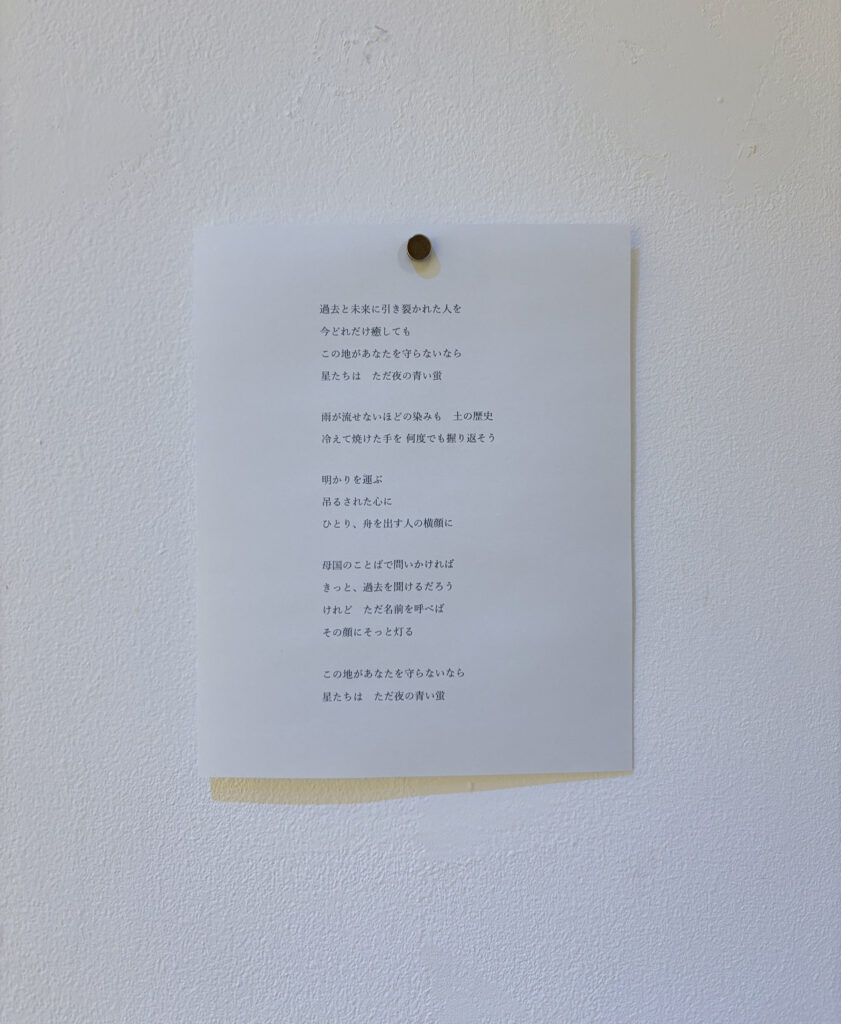 過去と未来に引き裂かれた人を
今どれだけ癒しても
この地があなたを守らないなら
星たちは　ただ夜の青い蛍
雨が流せないほどの染みも　土の歴史
冷えて焼けた手を 何度でも握り返そう
明かりを運ぶ
吊るされた心に
ひとり、舟を出す人の横顔に
母国のことばで問いかければ
きっと、過去を聞けるだろう
けれど　ただ名前を呼べば
その顔にそっと灯る
この地があなたを守らないなら
星たちは　ただ夜の青い蛍